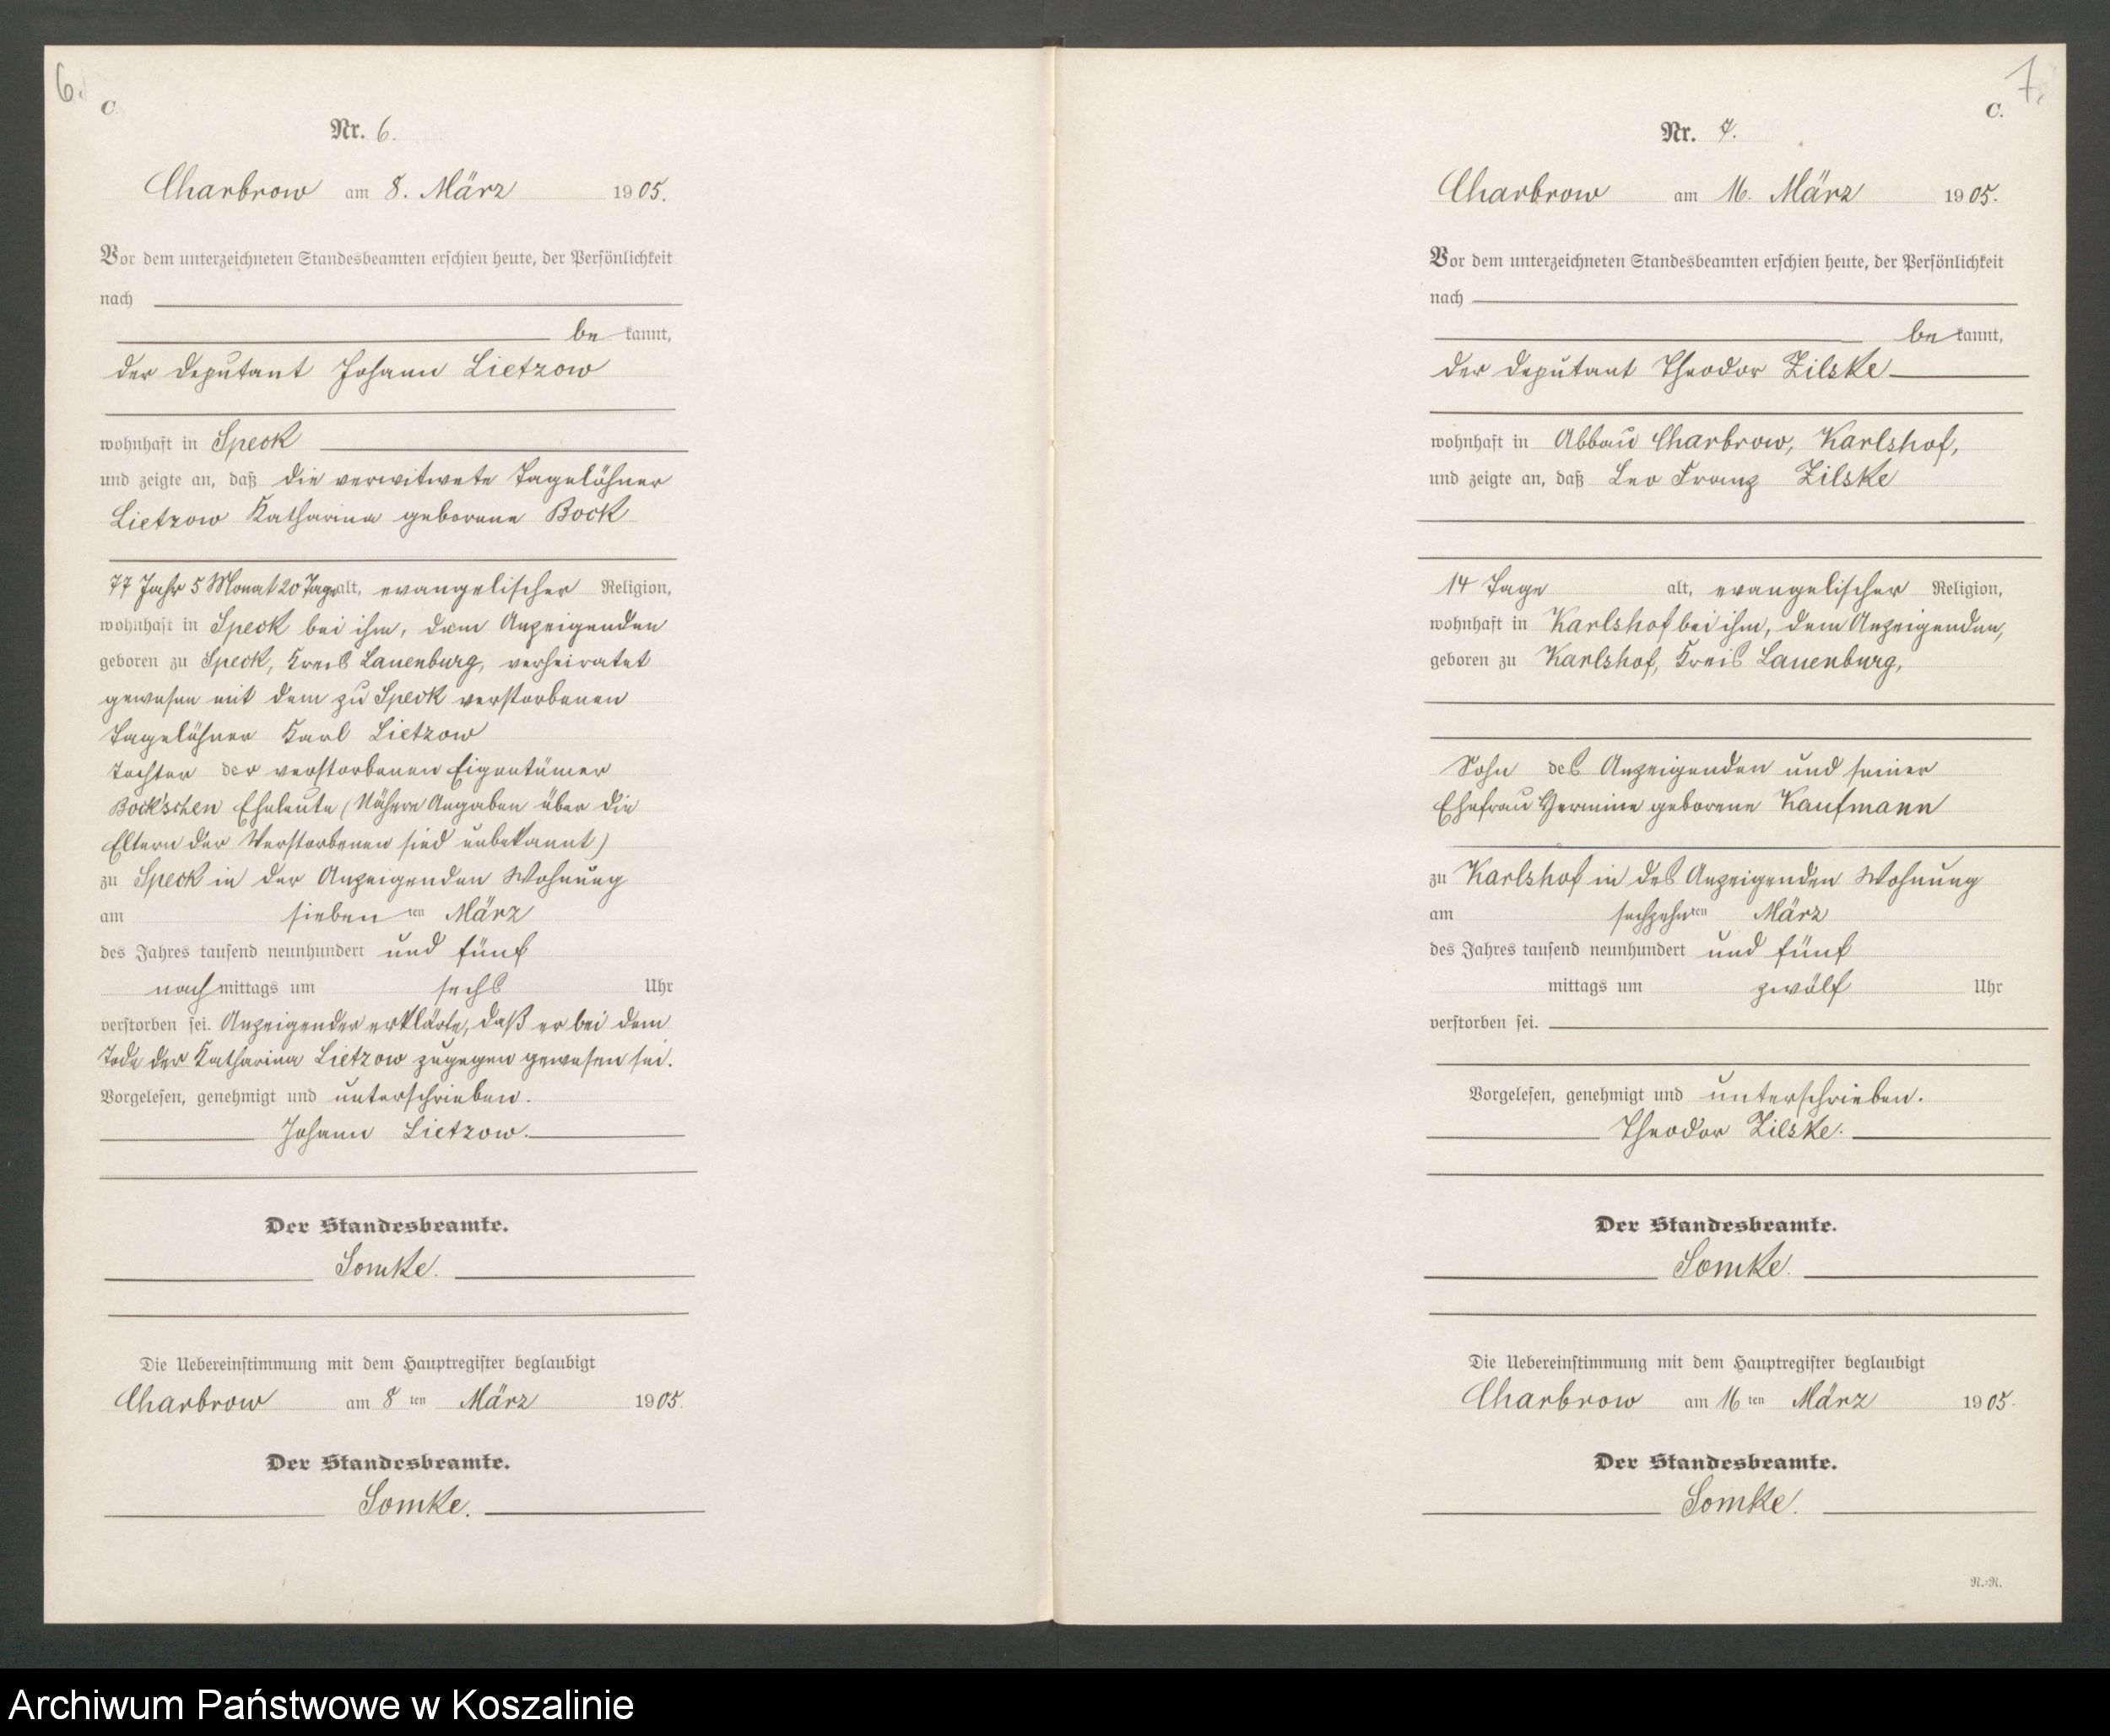 6.
C
Nr. 6.
Charbrow am 8. März 1905.
Vor dem unterzeichneten Standesbeamten erschien heute, der Persönlichkeit
nach
be kannt,
der Deputant Johann Lietzow
wohnhaft in Speck
und zeigte an, daß die verwitwete Tagelöhner
Lietzow Katharina geborene Bock
77 Jahr 5 Monat 20 Tage alt, evangelischer Religion,
wohnhaft in Speck bei ihm, dem Anzeigenden
geboren zu Speck, Kreis Lauenburg, verheiratet
gewesen mit dem zu Speck verstorbenen
Tagelöhner Karl Lietzow
Tochter der verstorbenen Eigentümer
Bock'schen Eheleute (Nähere Angaben über die
Eltern der Verstorbenen sind unbekannt)
zu Speck in der Anzeigenden Wohnung
am sieben ten März
des Jahres tausend neunhundert und fünf
nach mittags um sechs Uhr
verstorben sei. Anzeigender erklärte, daß er bei dem
Tode der Katharina Lietzow zugegen gewesen sei.
Vorgelesen, genehmigt und unterschrieben.
Johann Lietzow.
Der Standesbeamte.
Somke.
Die Uebereinstimmung mit dem Hauptregister beglaubigt
Charbrow am 8 ten März 1905.
Der Standesbeamte.
Somke.
7.
C.
Nr. 7.
Charbrow am 16. März 1905.
Vor dem unterzeichneten Standesbeamten erschien heute, der Persönlichkeit
nach
be kannt,
der Deputant Theodor Zilske
wohnhaft in Abbau Charbrow, Karlshof,
und zeigte an, daß Leo Franz Zilske
14 Tage alt, evangelischer Religion,
wohnhaft in Karlshof bei ihm, dem Anzeigenden,
geboren zu Karlshof, Kreis Lauenburg,
Sohn des Anzeigenden und seiner
Ehefrau Hermine geborene Kaufmann
zu Karlshof in des Anzeigenden Wohnung
am sechzehn ten März
des Jahres tausend neunhundert und fünf
mittags um zwölf Uhr
verstorben sei.
Vorgelesen, genehmigt und unterschrieben.
Theodor Zilske.
Der Standesbeamte.
Somke.
Die Uebereinstimmung mit dem Hauptregister beglaubigt
Charbrow am 16 ten März 1905.
Der Standesbeamte.
Somke.
N.:N.
Archiwum Państwowe w Koszalinie